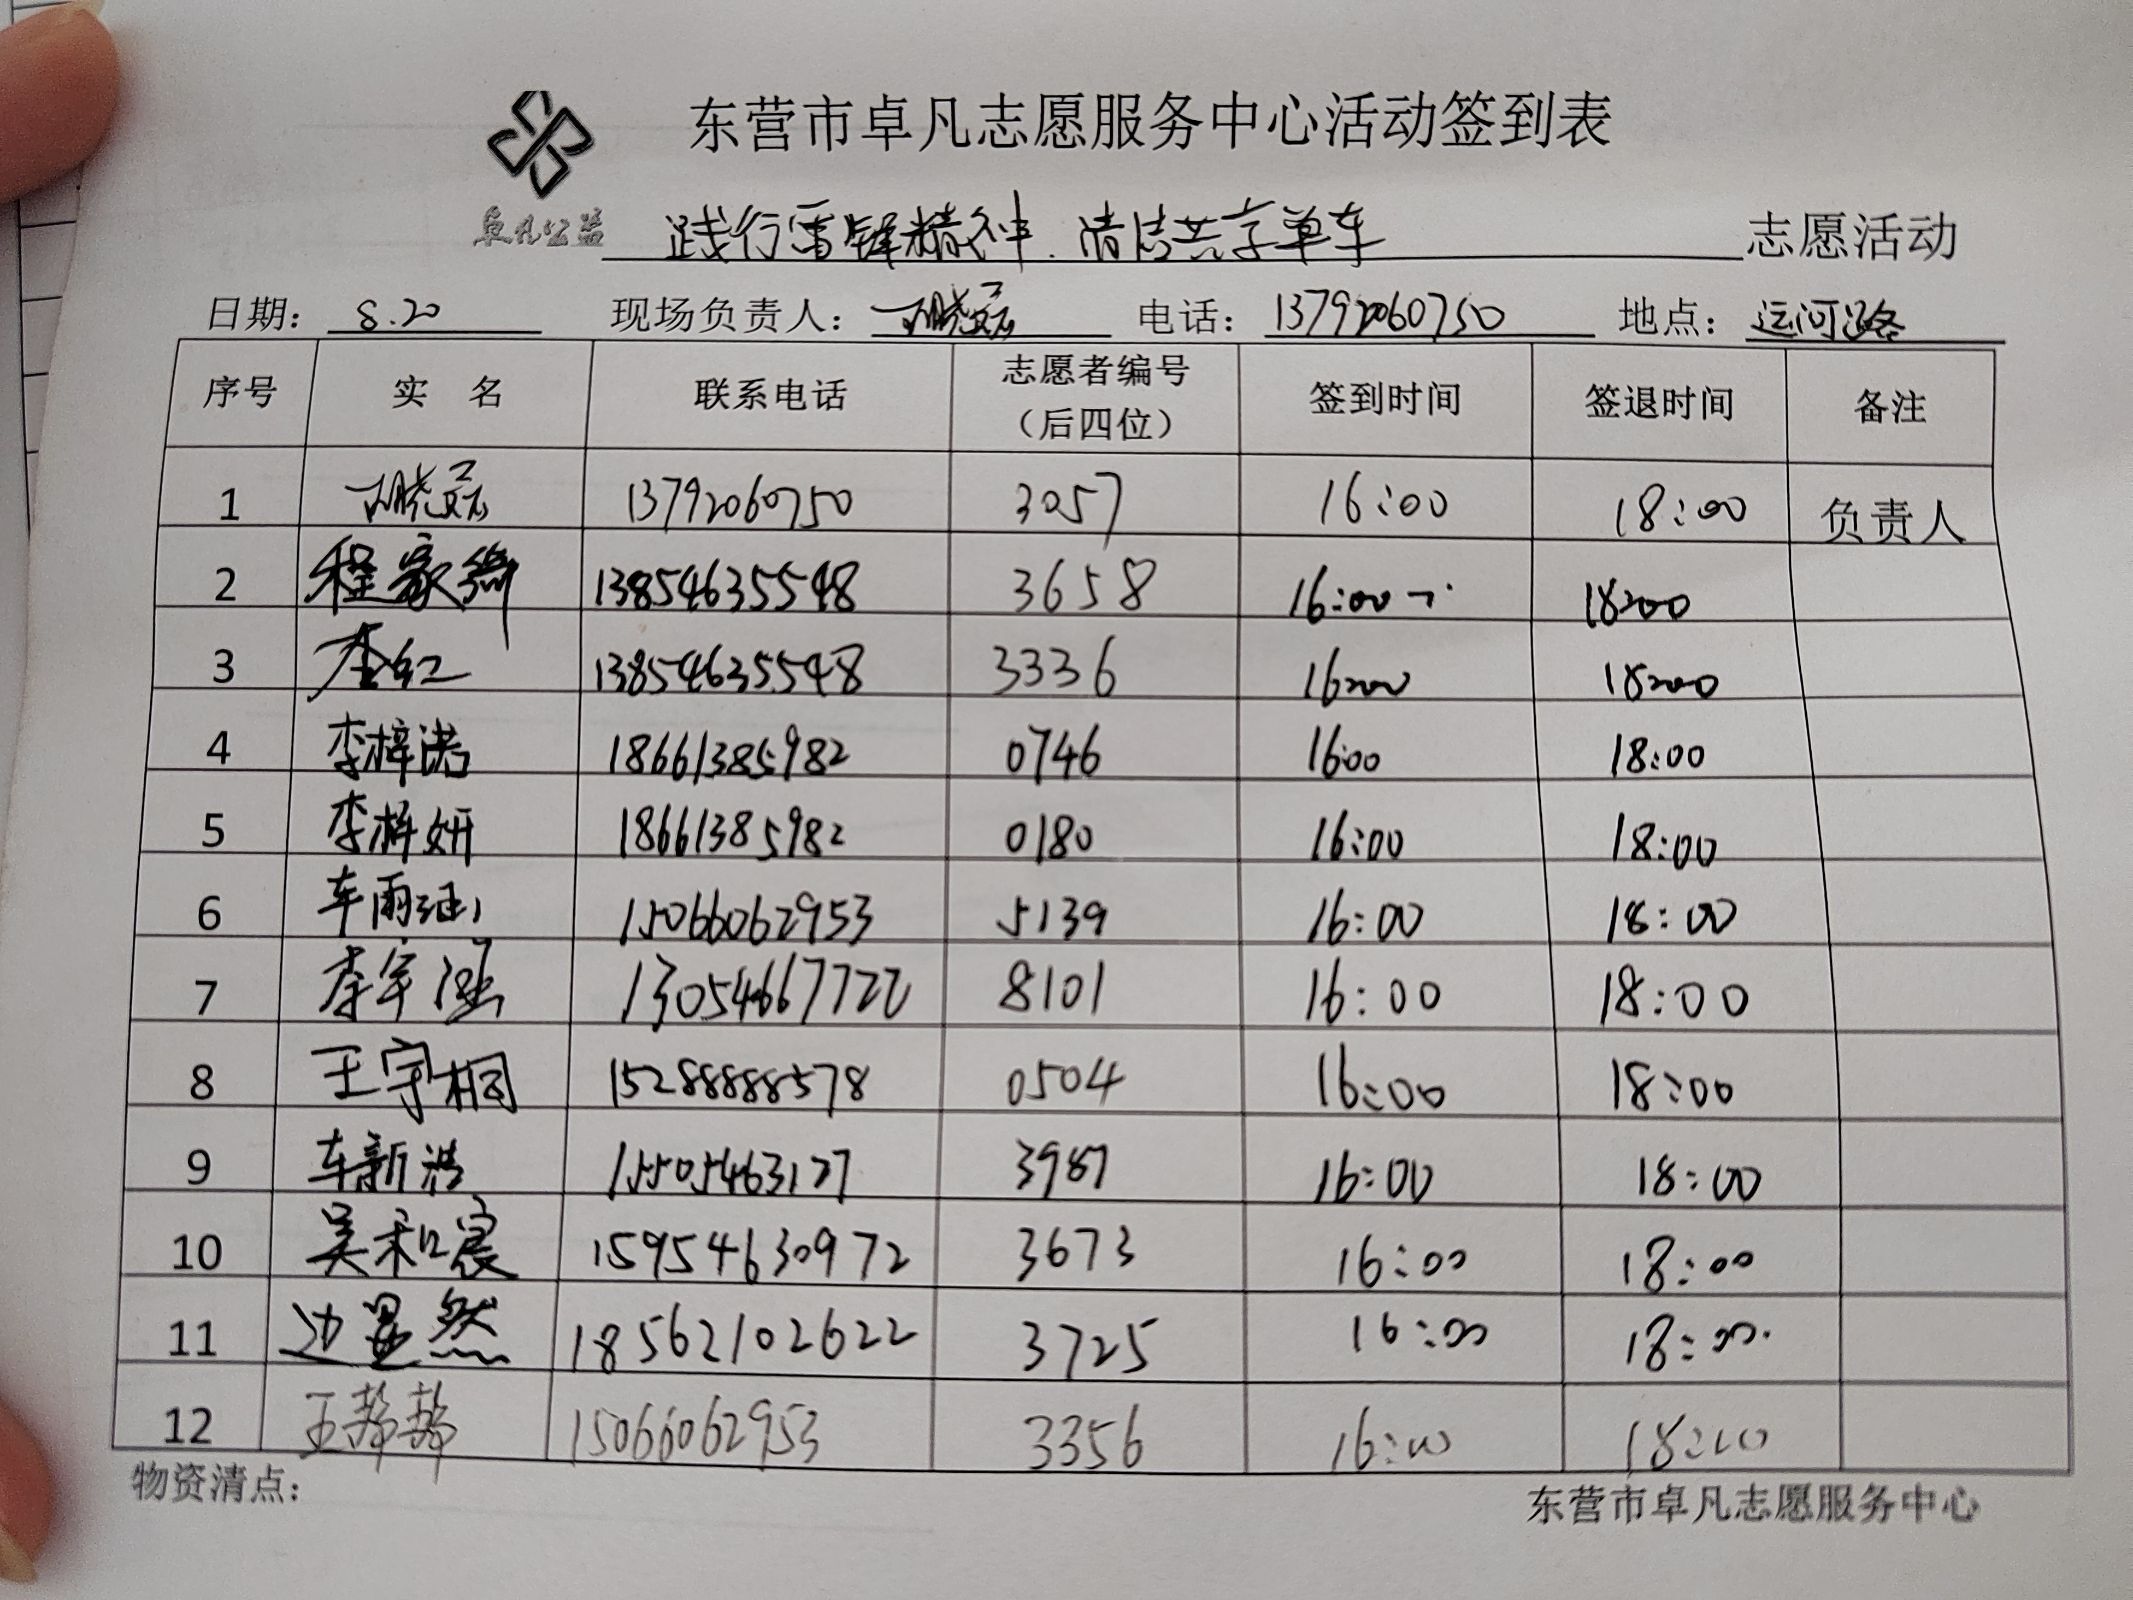 东营市卓凡志愿服务中心活动签到表
卓凡公益
践行雷锋精神.清洁共享单车 志愿活动
日期：8.20 现场负责人： 电话：13792060750 地点：运河路
序号 实 名 联系电话 志愿者编号（后四位） 签到时间 签退时间 备注
1 13792060750 3057 16:00 18:00 负责人
2 程家 13854635548 3658 16:00 18:00
3 李红 13854635548 3336 16:00 18:00
4 李梓诺 18661385982 0746 16:00 18:00
5 李梓妍 18661385982 0180 16:00 18:00
6 车雨涵 15066062953 5139 16:00 18:00
7 李宇涵 13054667722 8101 16:00 18:00
8 王宇桐 15288888578 0504 16:00 18:00
9 车新浩 15505463127 3987 16:00 18:00
10 吴和宸 15954630972 3673 16:00 18:00
11 边昱然 18562102622 3725 16:00 18:00
12 王 15066062953 3356 16:00 18:00
物资清点： 东营市卓凡志愿服务中心